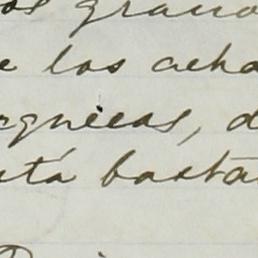 os grano
e los acha
rquicas, d
stá basta